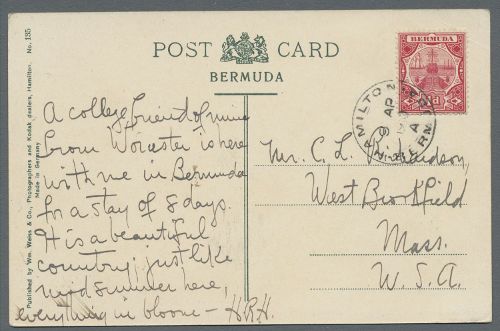 No. 135
Published by Wm. Weiss & Co., Photographers and Kodak dealers, Hamilton.
Made in Germany
POST CARD
BERMUDA
BERMUDA
HAMILTON
AP
BERMUDA
A college friend of mine
from Worcester is here
with me in Bermuda
for a stay of 8 days.
It is a beautiful
country: just like
midsummer here,
everything in bloom — H.R.H.
Mr. C. L.
West Brookfield
Mass.
U.S.A.